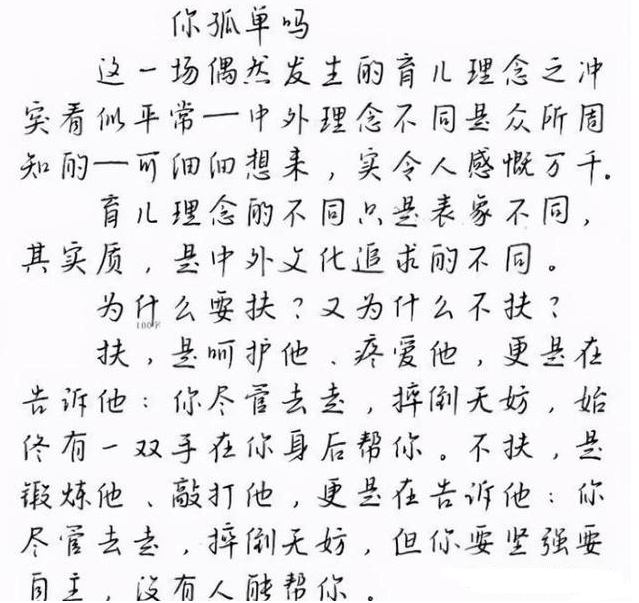 你孤单吗
这一场偶然发生的育儿理念之冲
突看似平常一中外理念不同是众所周
知的一可细细想来，实令人感慨万千.
育儿理念的不同只是表象不同，
其实质，是中外文化追求的不同。
为什么要扶？又为什么不扶？
100字
扶，是呵护他、疼爱他，更是在
告诉他：你尽管去走，摔倒无妨，始
终有一双手在你身后帮你。不扶，是
锻炼他、敲打他，更是在告诉他：你
尽管去走，摔倒无妨，但你要坚强要
自主，没有人能帮你。